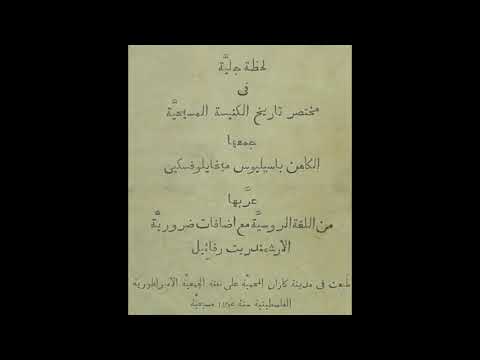 لحظة جليَّة
في
مختصر تاريخ الكنيسة المسيحيَّة
جمعها
الكاهن باسيليوس ميخايلوفسكي
عرَّبها
من اللغة الروسيَّة مع اضافات ضروريَّة
الارشمندريت رفائيل
طبعت في مدينة كازان المحميَّة على نفقة الجمعيَّة الامبراطورية
الفلسطينية سنة مسيحيَّة